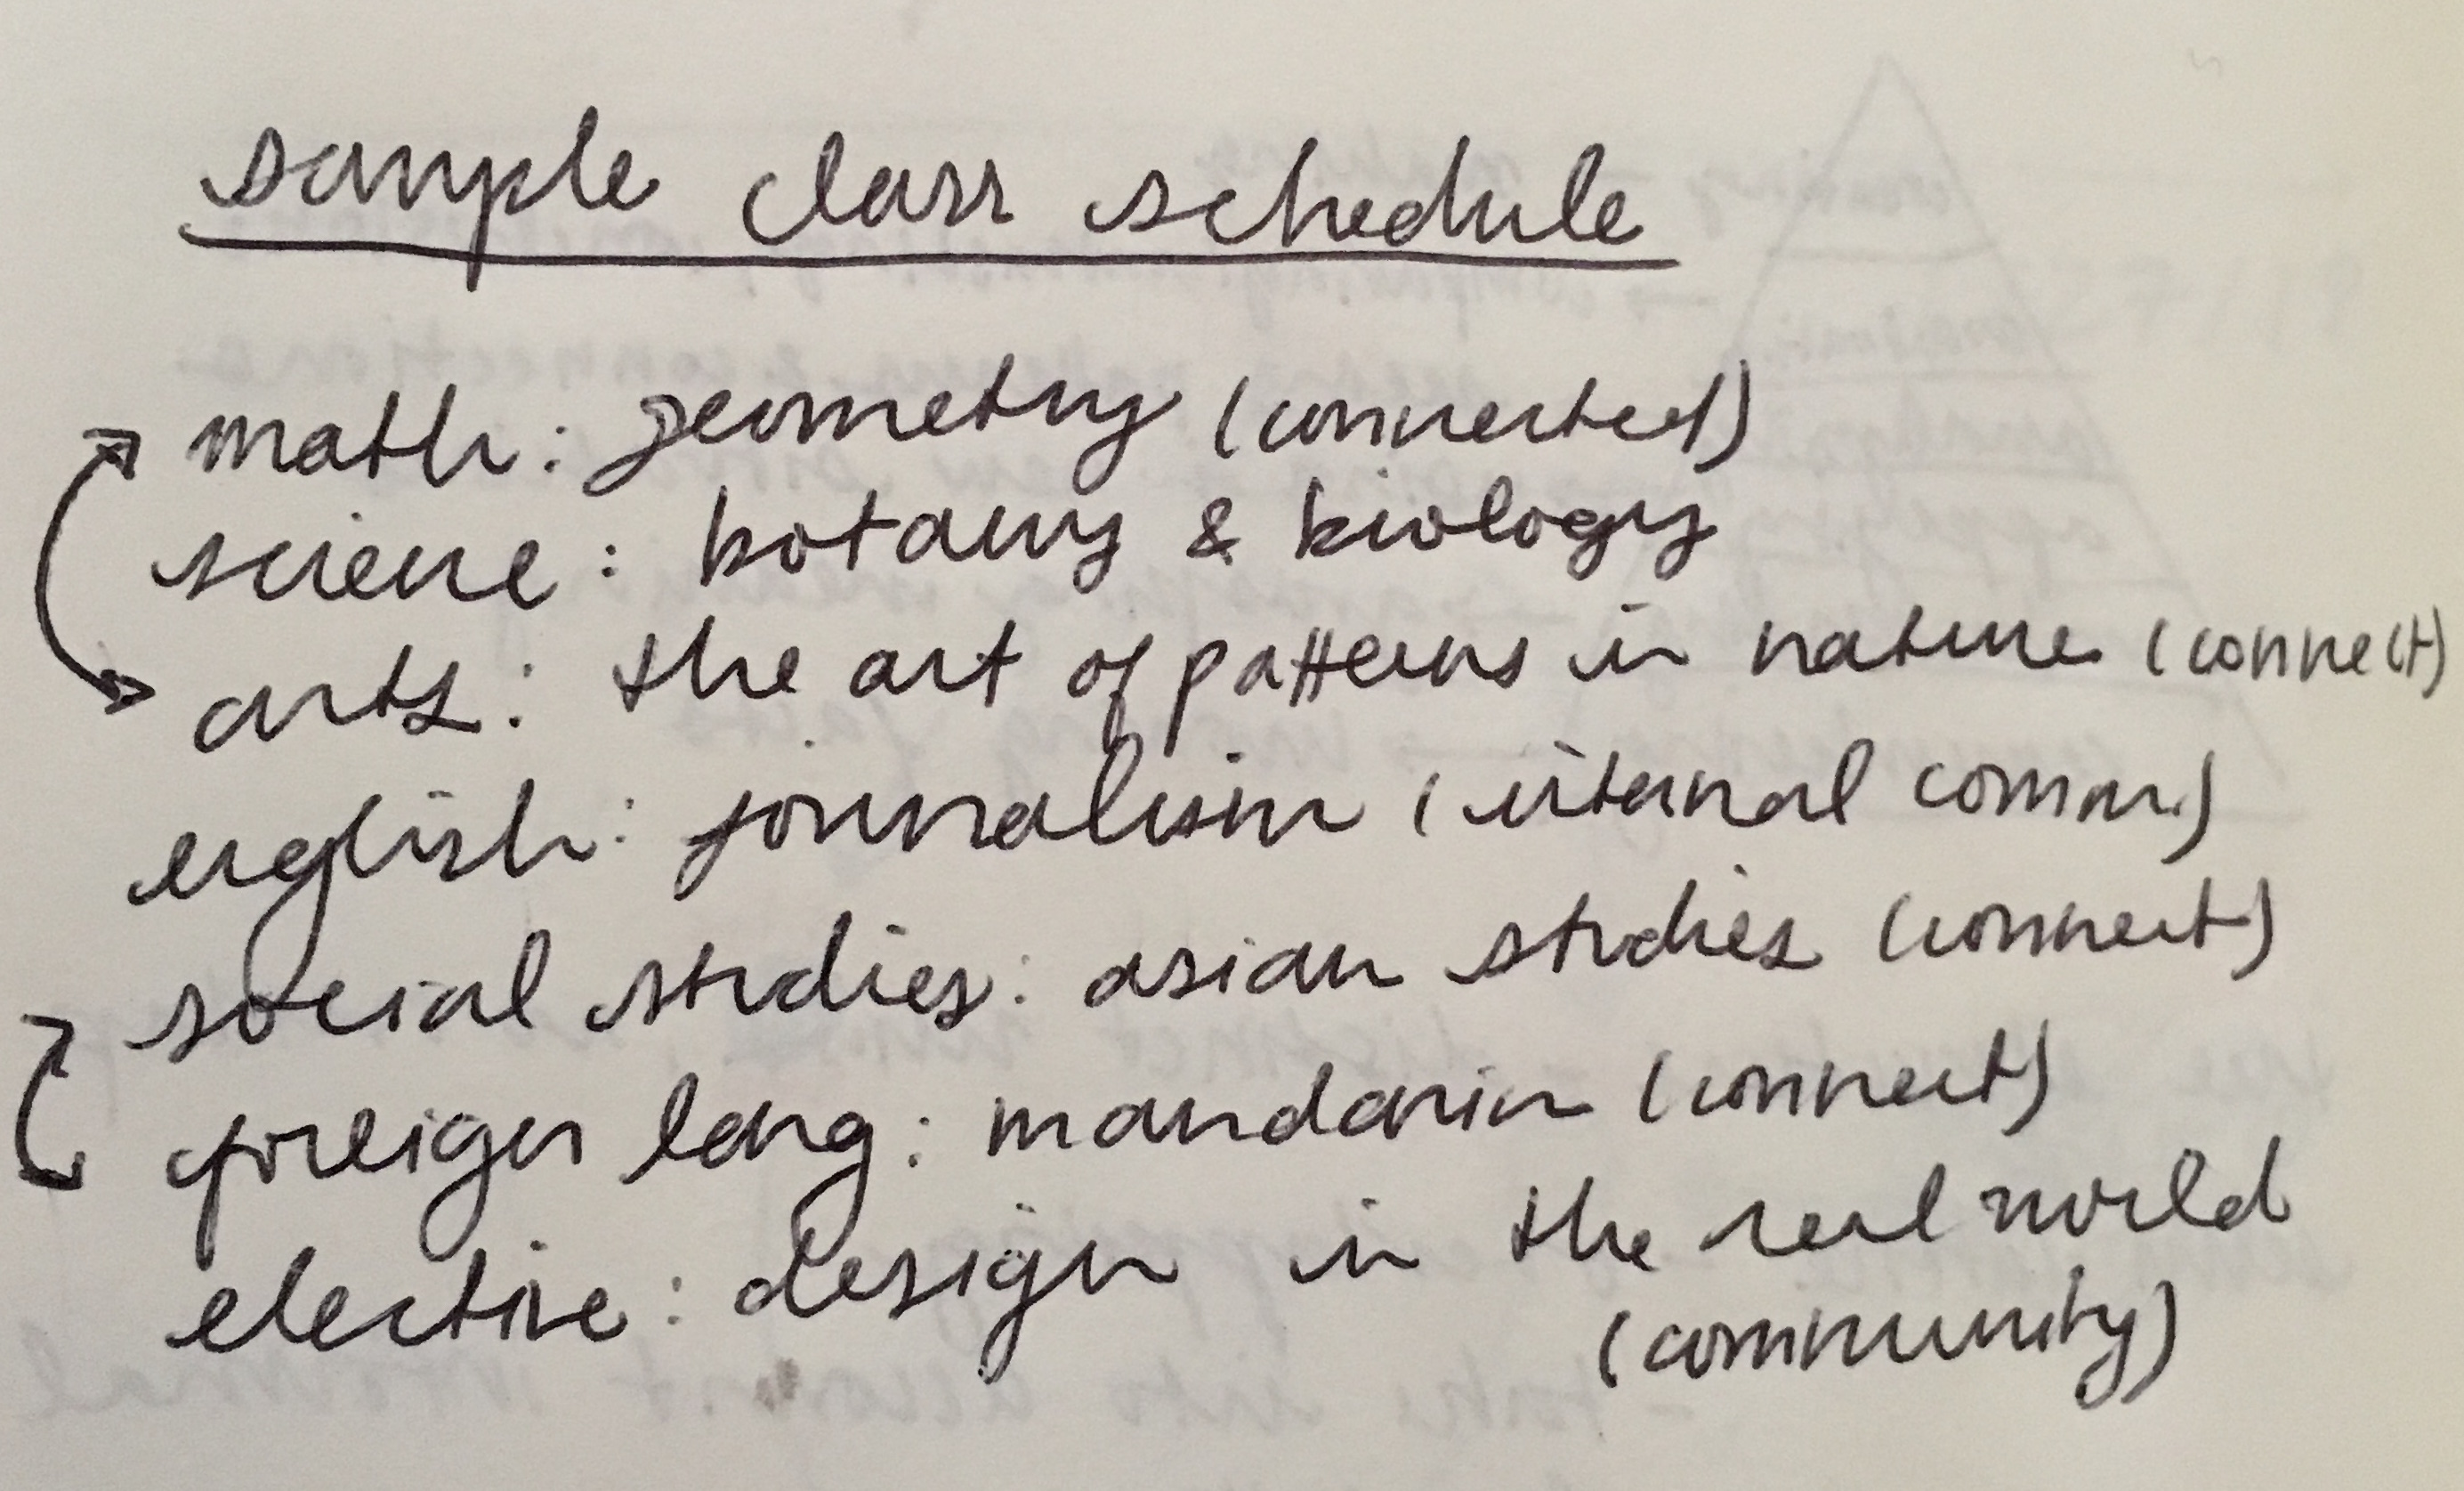 sample class schedule
math: geometry (connected)
science: botany & biology
arts: the art of patterns in nature (connect)
english: journalism (internal comm)
social studies: asian studies (connect)
foreign lang: mandarin (connect)
elective: design in the real world
(community)